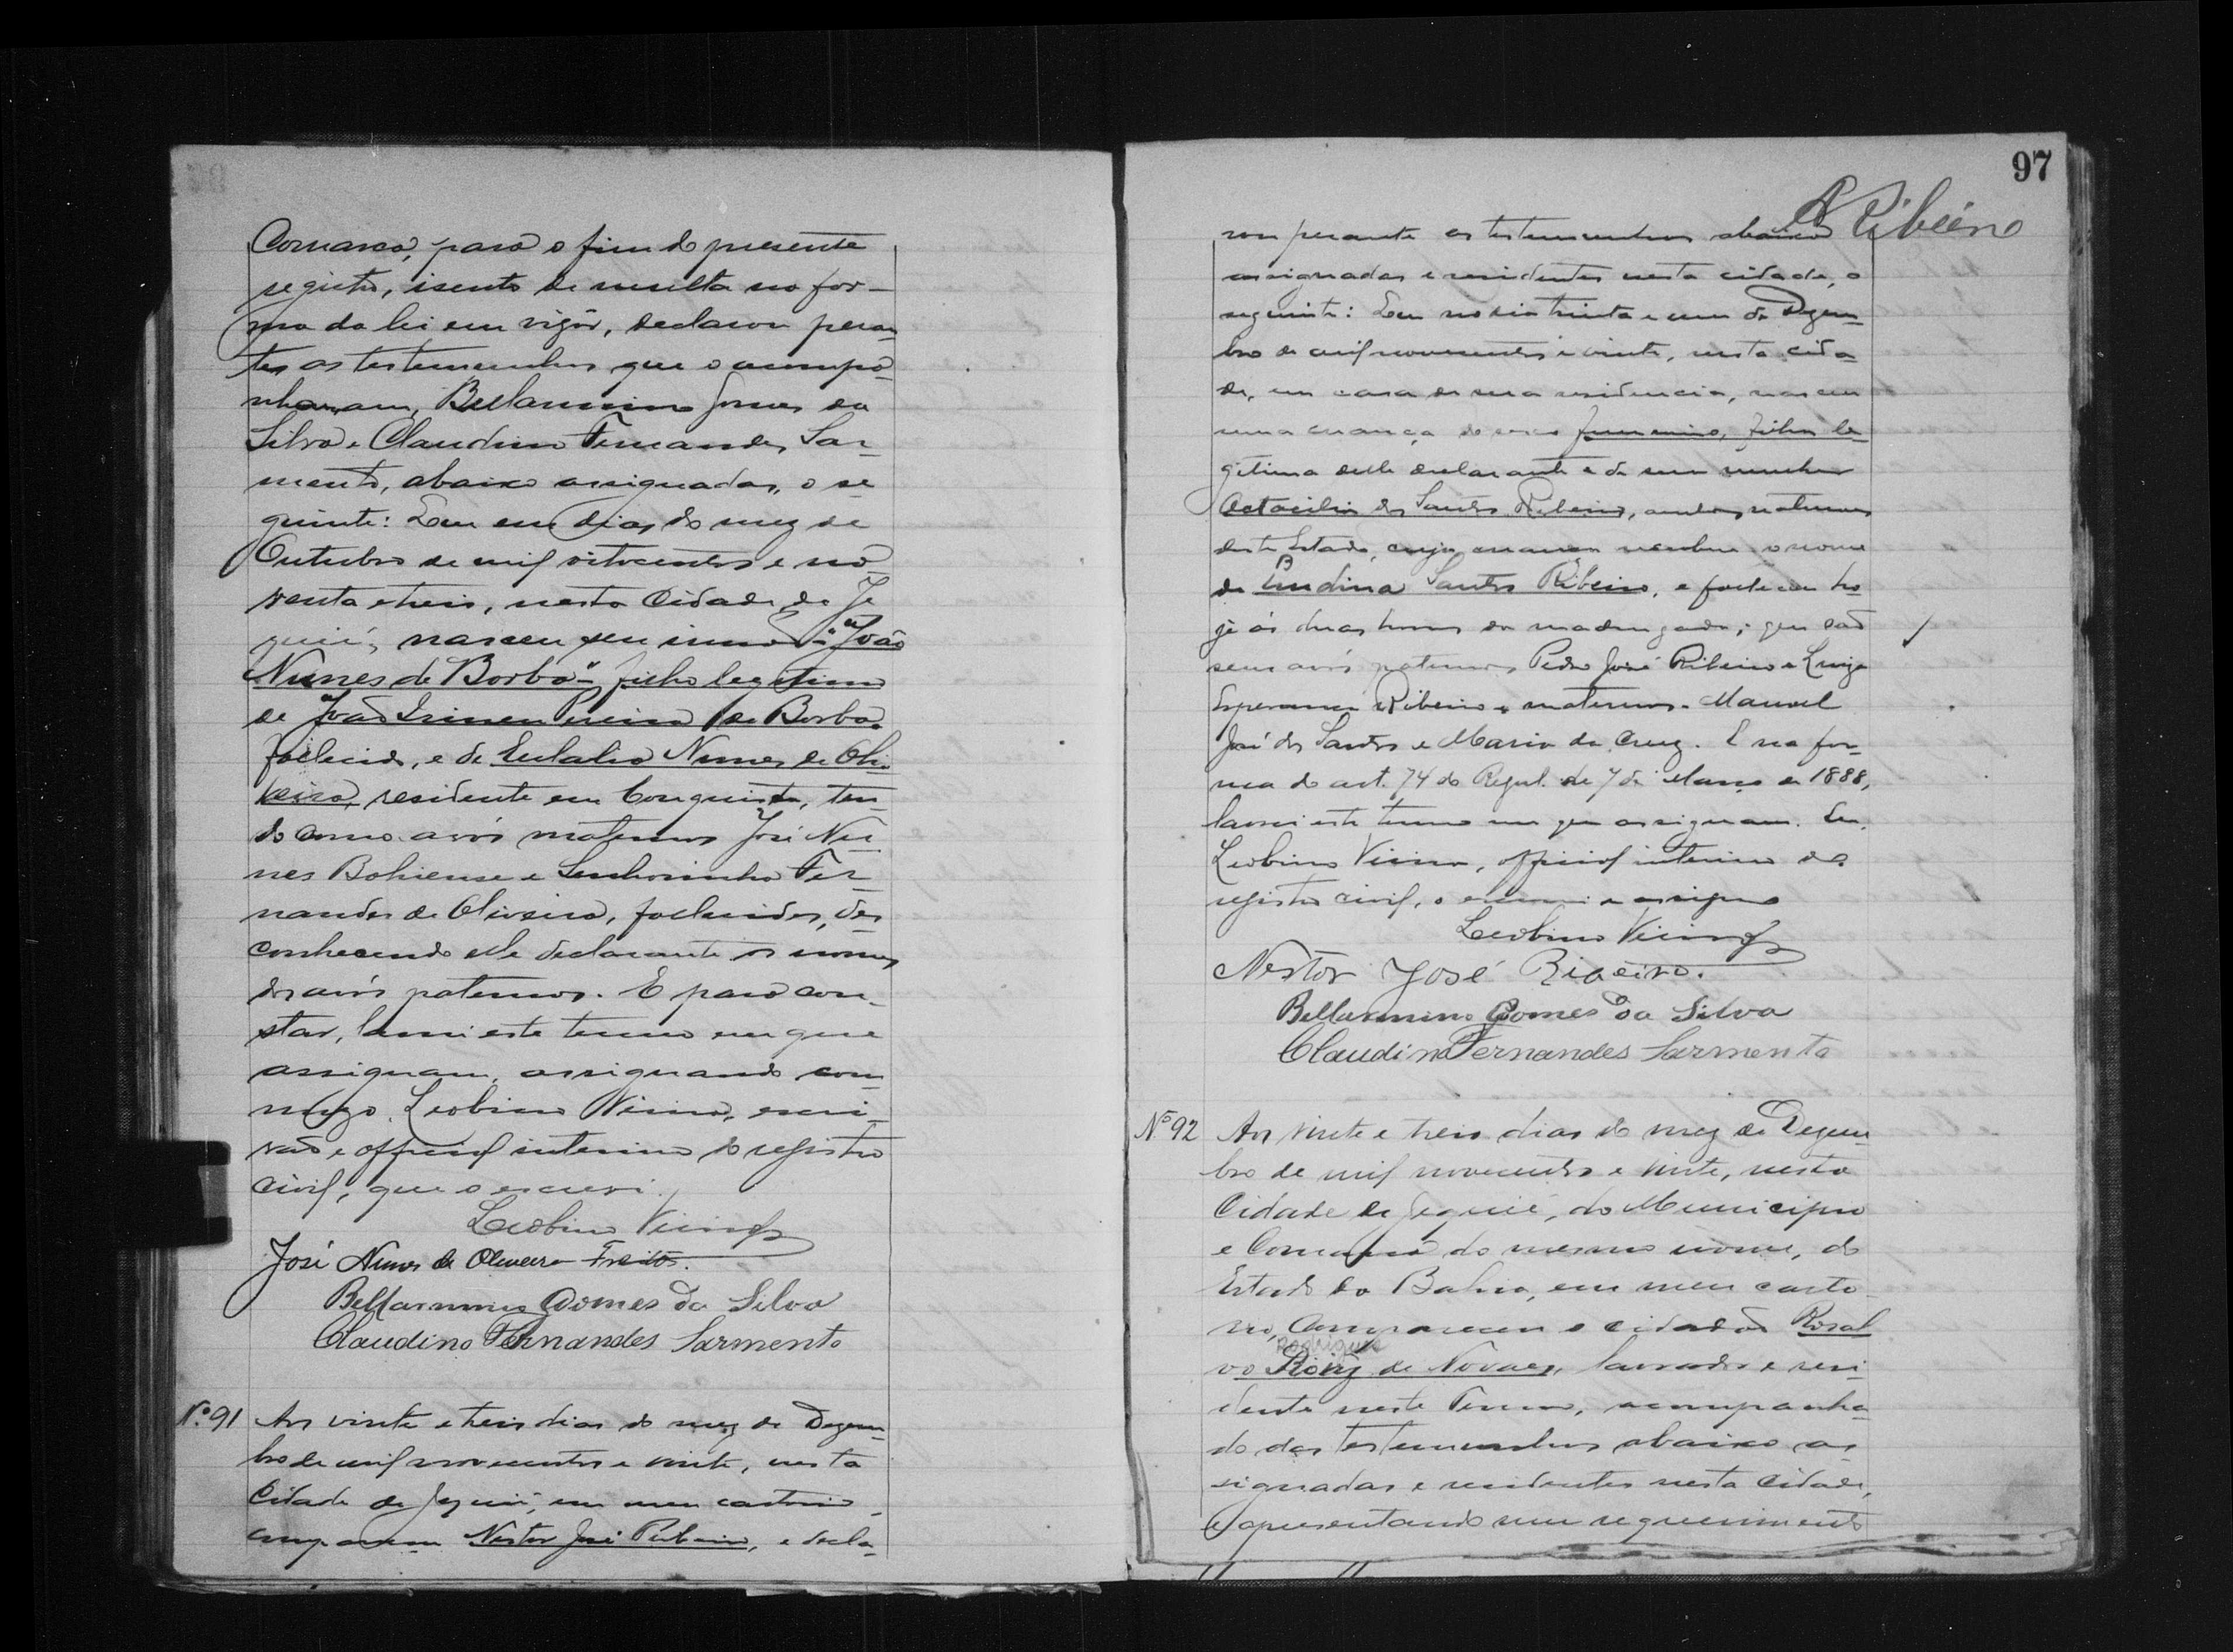 Comarca, para o fim do presente
registro, isento de multa na for-
ma da lei em vigôr, declarou peran-
tes as testemunhas que o acompa-
nharam, Bellarmino Gomes da
Silva e Claudino Fernandes Sar-
mento, abaixo assignadas, o se-
guinte: Em um dias do mez de
Outubro de mil oitocentos e no-
venta e treis, nesta Cidade de Je-
quié, nasceu seu irmão "João
Nunes de Borba" filho legitimo
de João Irineu Pereira de Borba
fallecido, e de Eulalia Nunes de Oli-
veira, residente em Conquista, ten-
do como avós maternos José Nu-
nes Bahiense e Senhorinha Fer-
nandes de Oliveira, fallecidos, des-
conhecendo elle declarante os nomes
dos avós paternos. E para con-
star, lavrei este termo em que
assignam, assignando com-
migo, Leobino Vieira, escri-
vão e official interino do registro
civil, que o escrevi.
Leobino Vieira
José Nunes de Oliveira Freitas.
Bellarmino Gomes da Silva
Claudino Fernandes Sarmento
Nº 91 Aos vinte e treis dias do mez de Dezem-
bro de mil novecentos e vinte, nesta
Cidade de Jequié, em meu cartorio
compareceu Nestor José Ribeiro, e decla-
97
Ribeiro
rou perante as testemunhas abaixo
assignadas e residentes nesta cidade, o
seguinte: Em no dia trinta e um de Dezem-
bro de mil novecentos e vinte, nesta cida-
de, em casa de sua residencia, nasceu
uma criança do sexo femenino, filha le-
gitima delle declarante e de sua mulher
Octacilia dos Santos Ribeiro, ambos naturaes
deste Estado, cuja criança recebeu o nome
de Undina Santos Ribeiro, e falleceu ho-
je ás duas horas da madrugada; que são
seus avós paternos Pedro José Ribeiro e Luiza
Esperança Ribeiro e maternos Manoel
José dos Santos e Maria da Cruz. E na for-
ma do art. 74 do Regul. de 7 de Março de 1888,
lavrei este termo em que assignam. Eu,
Leobino Vieira, official interino do
registro civil, o escrevi e assigno
Leobino Vieira
Nestor José Ribeiro.
Bellarmino Gomes da Silva
Claudino Fernandes Sarmento
Nº 92 Aos vinte e treis dias do mez de Dezem-
bro de mil novecentos e vinte, nesta
Cidade de Jequié, do Municipio
e Comarca do mesmo nome, do
Estado da Bahia, em meu carto-
rio, compareceu o cidadão Rosal-
Rodrigues
vo Roiz de Novaes, lavrador e resi-
dente neste Termo, acompanha-
do das testemunhas abaixo as-
signadas e residentes nesta Cidade,
e apresentando um requerimento